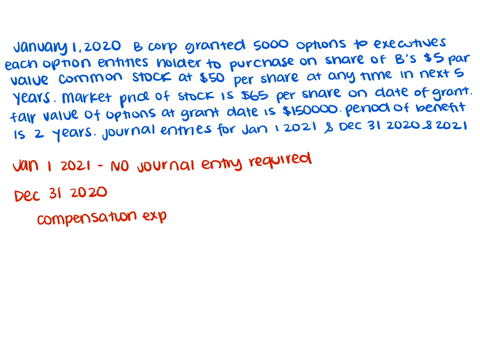 January 1, 2020 B corp granted 5000 options to executives
each option entities holder to purchase on share of B's $5 par
value common stock at $50 per share at any time in next 5
years. Market price of stock is $65 per share on date of grant.
fair value of options at grant date is $150000. period of benefit
is 2 years. journal entries for Jan 1 2021 & Dec 31 2020 & 2021
Jan 1 2021 - NO journal entry required
Dec 31 2020
compensation exp